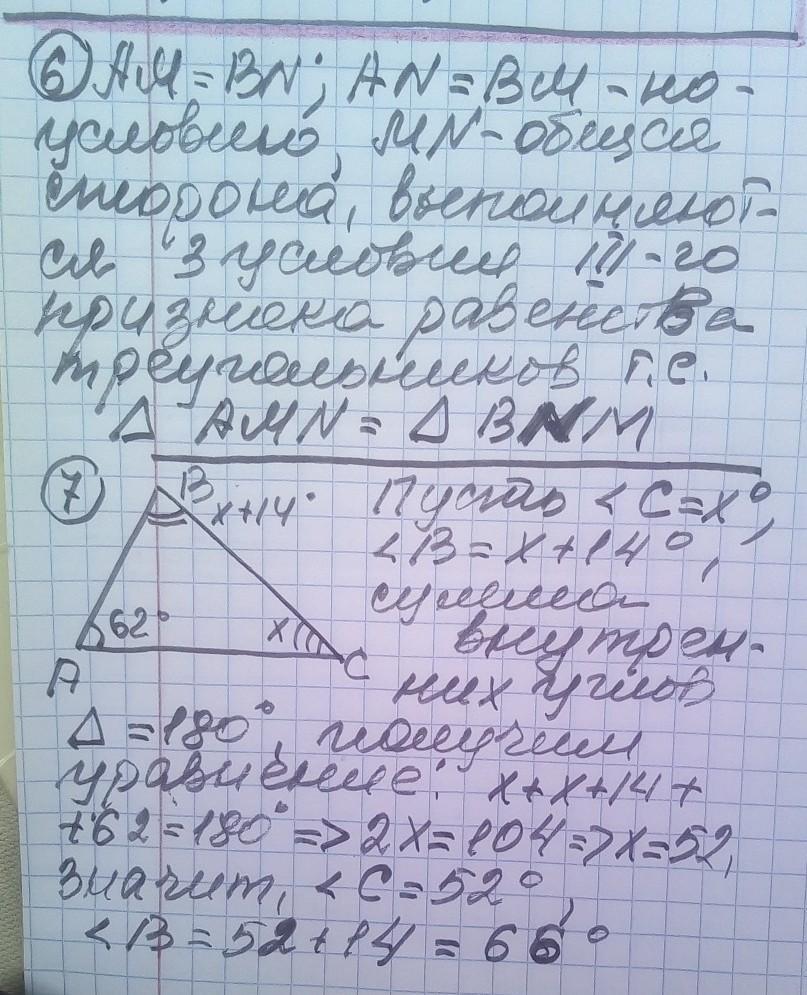 6 AM = BN; AN = BM - по-
условию, MN - общая
сторона, выполняют-
ся 3 условия III-го
признака равенства
треугольников т.е.
Δ AMN = Δ BNM
7 B x+14°
62° x
A C
Пусть <C=x°,
<B=x+14°,
сумма
внутрен-
них углов
Δ = 180°, получим
уравнение: x+x+14+
+62=180° => 2x=104 => x=52,
Значит, <C=52°,
<B=52+14=66°